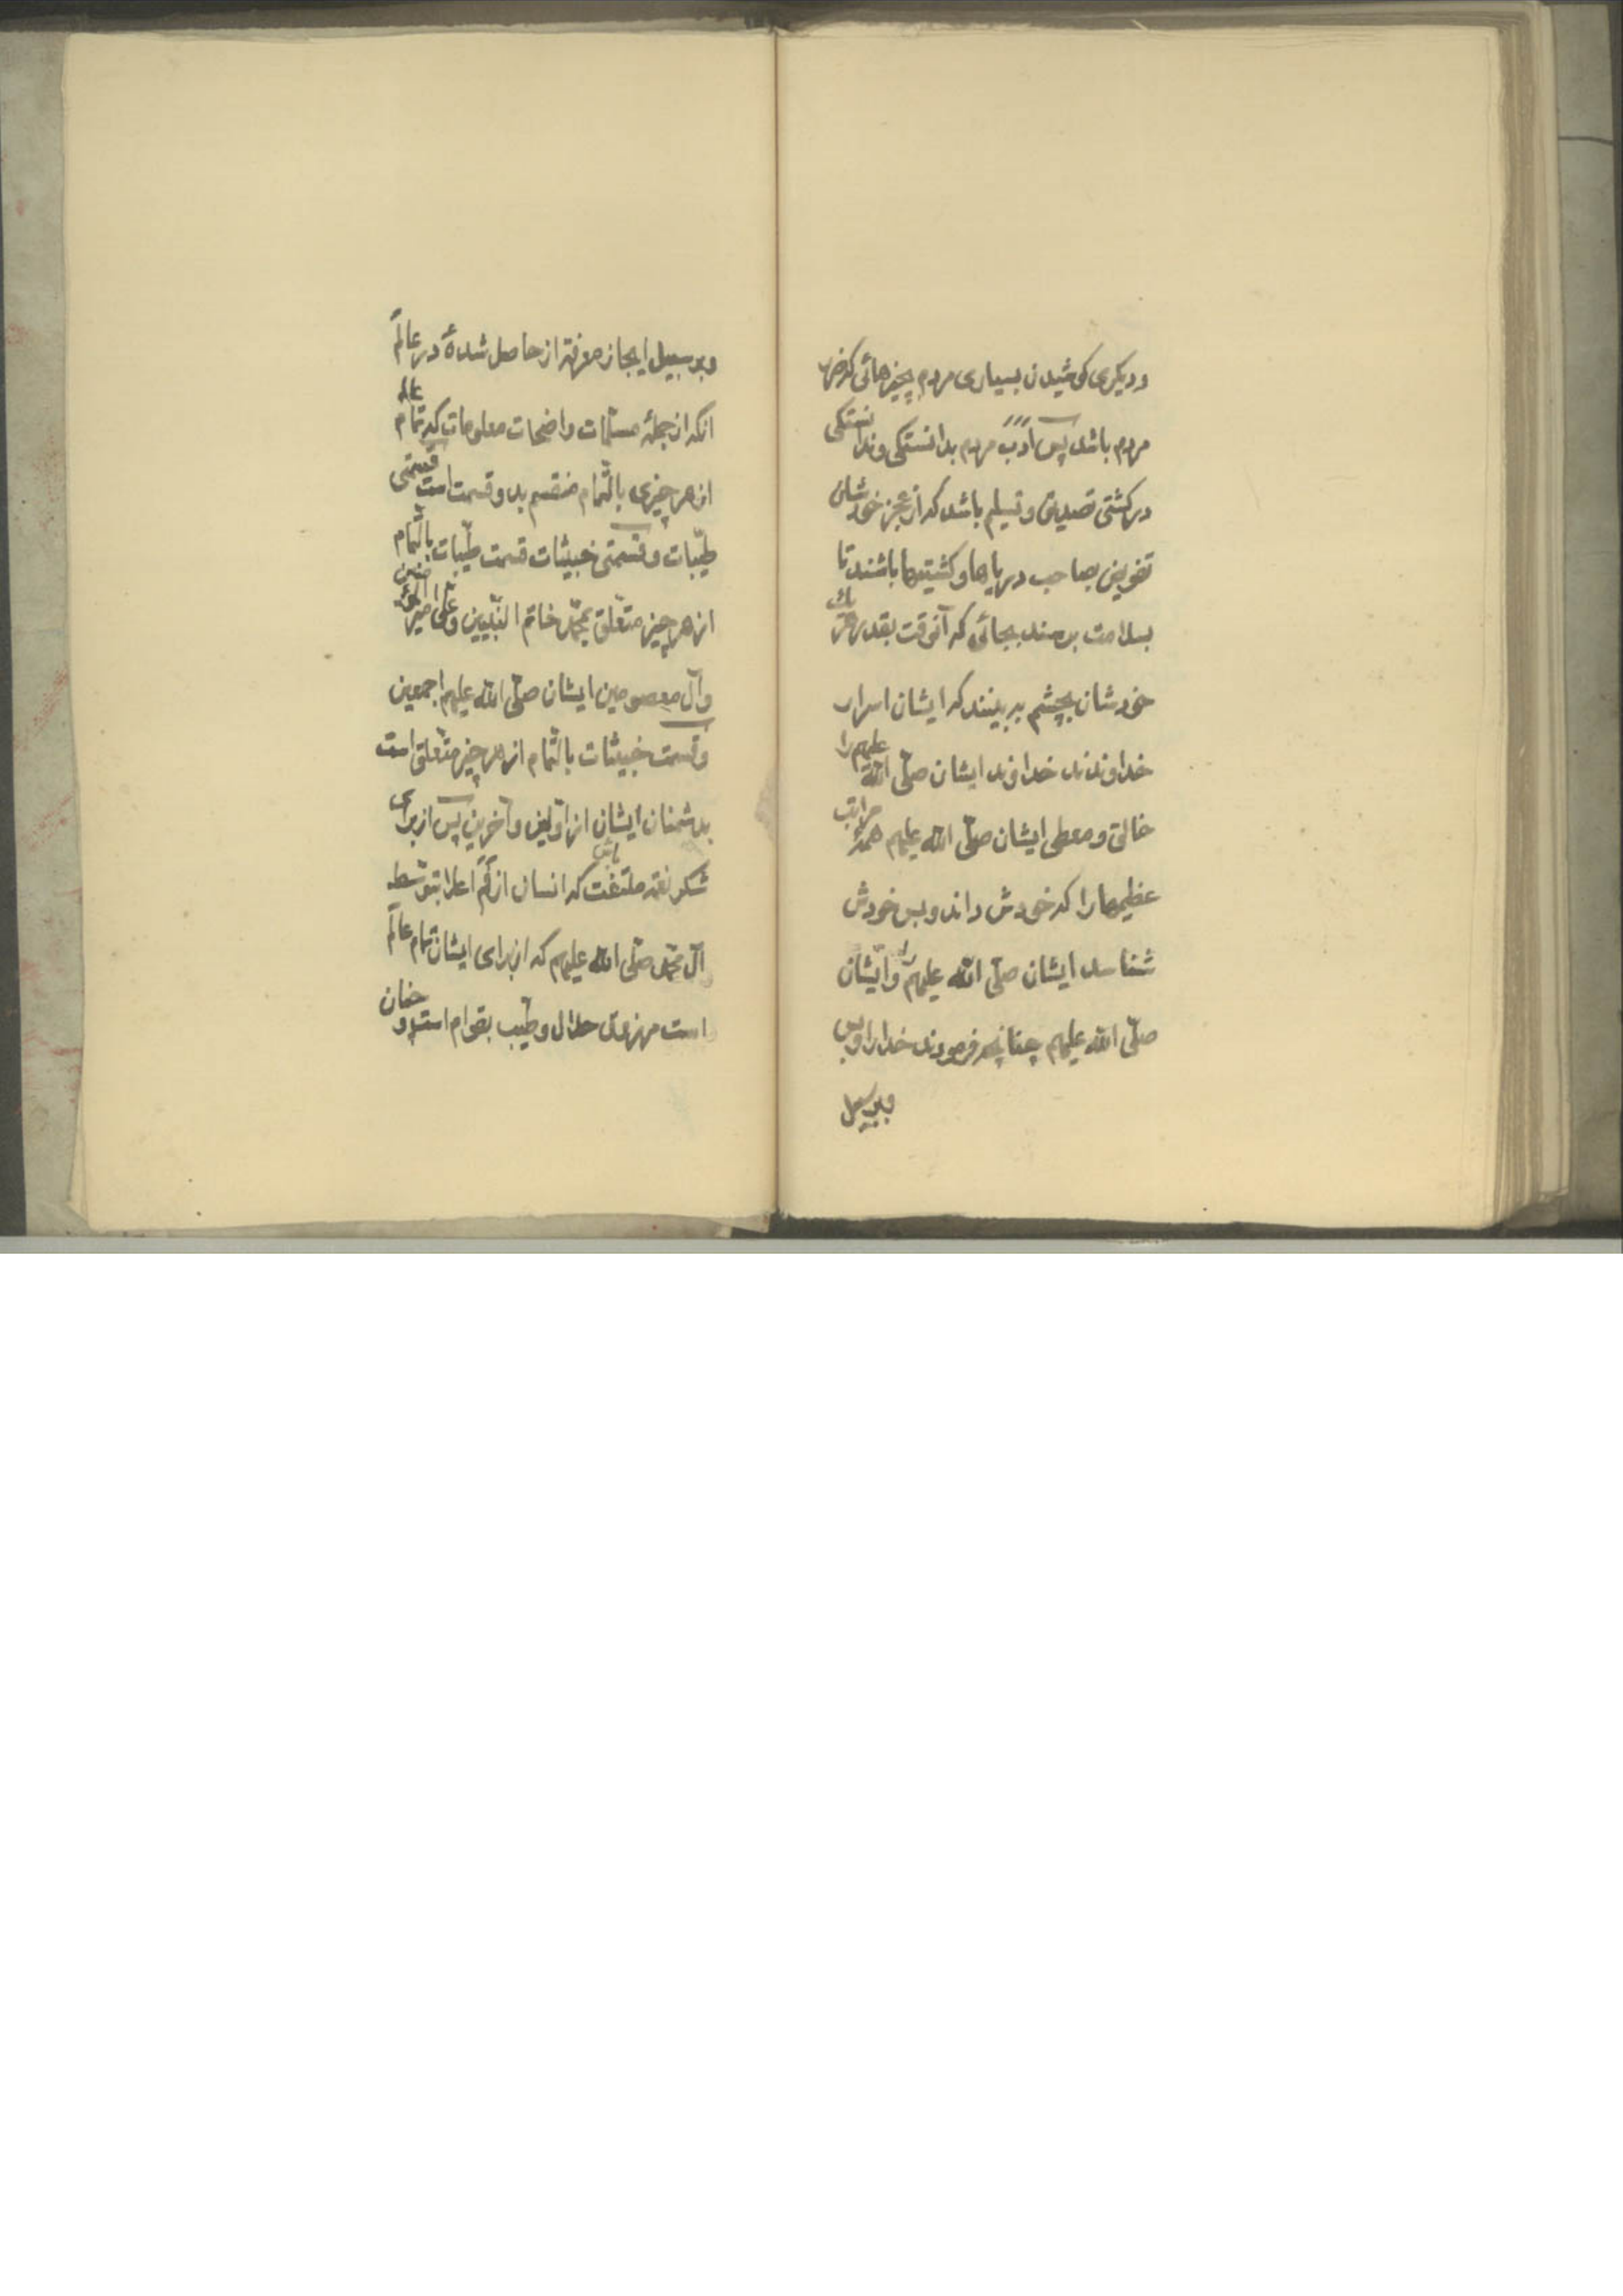 ودیکری کوشیدن بسیاری مردم بچیزهائی که ضرر
مردم باشد پس ادب مردم بدانستکی وندانستکی
در کشتی تصدیق وتسلیم باشد که از عجز خودشان
تفویض بصاحب دریاها وکشتیها باشند تا
بسلامت برسند بجائی که آنوقت بقدر هر یک
خودشان بچشم به بینند که ایشان اسرار
خداوندند خداوند ایشان صلّی الله علیهم را
خالق ومعطی ایشان صلّی الله علیهم همه مراتب
عظیمها را که خودش داند وبس خودش
شناسد ایشان صلّی الله علیهم را وایشان
صلّی الله علیهم چنانچه فرمودند خدا را وبس
وبر سبیل
وبر سبیل ایجاز معرفة از حاصل شدۀ در عالم
انکه از جملۀ مسلّمات واضحات معلومات که تمام عالم
از هر چیزی بالتّمام منقسم بدو قسمت است قسمتی
طیّبات وقسمتی خبیثات قسمت طیّبات بالتّمام
از هر چیز متعلّق بمحمّد خاتم النّبیّین وعلی امیر المؤمنین
وآل معصومین ایشان صلّی الله علیهم اجمعین
وقسمت خبیثات بالتّمام از هر چیز متعلّق است
بدشمنان ایشان از اوّلین وآخرین پس از برای
شکر نعمة ملتفت باش که انسان از اعلا بتوسّط
آل محمّد صلّی الله علیهم که از برای ایشان تمام عالم
است حلال وطیّب بقوام است و چنان